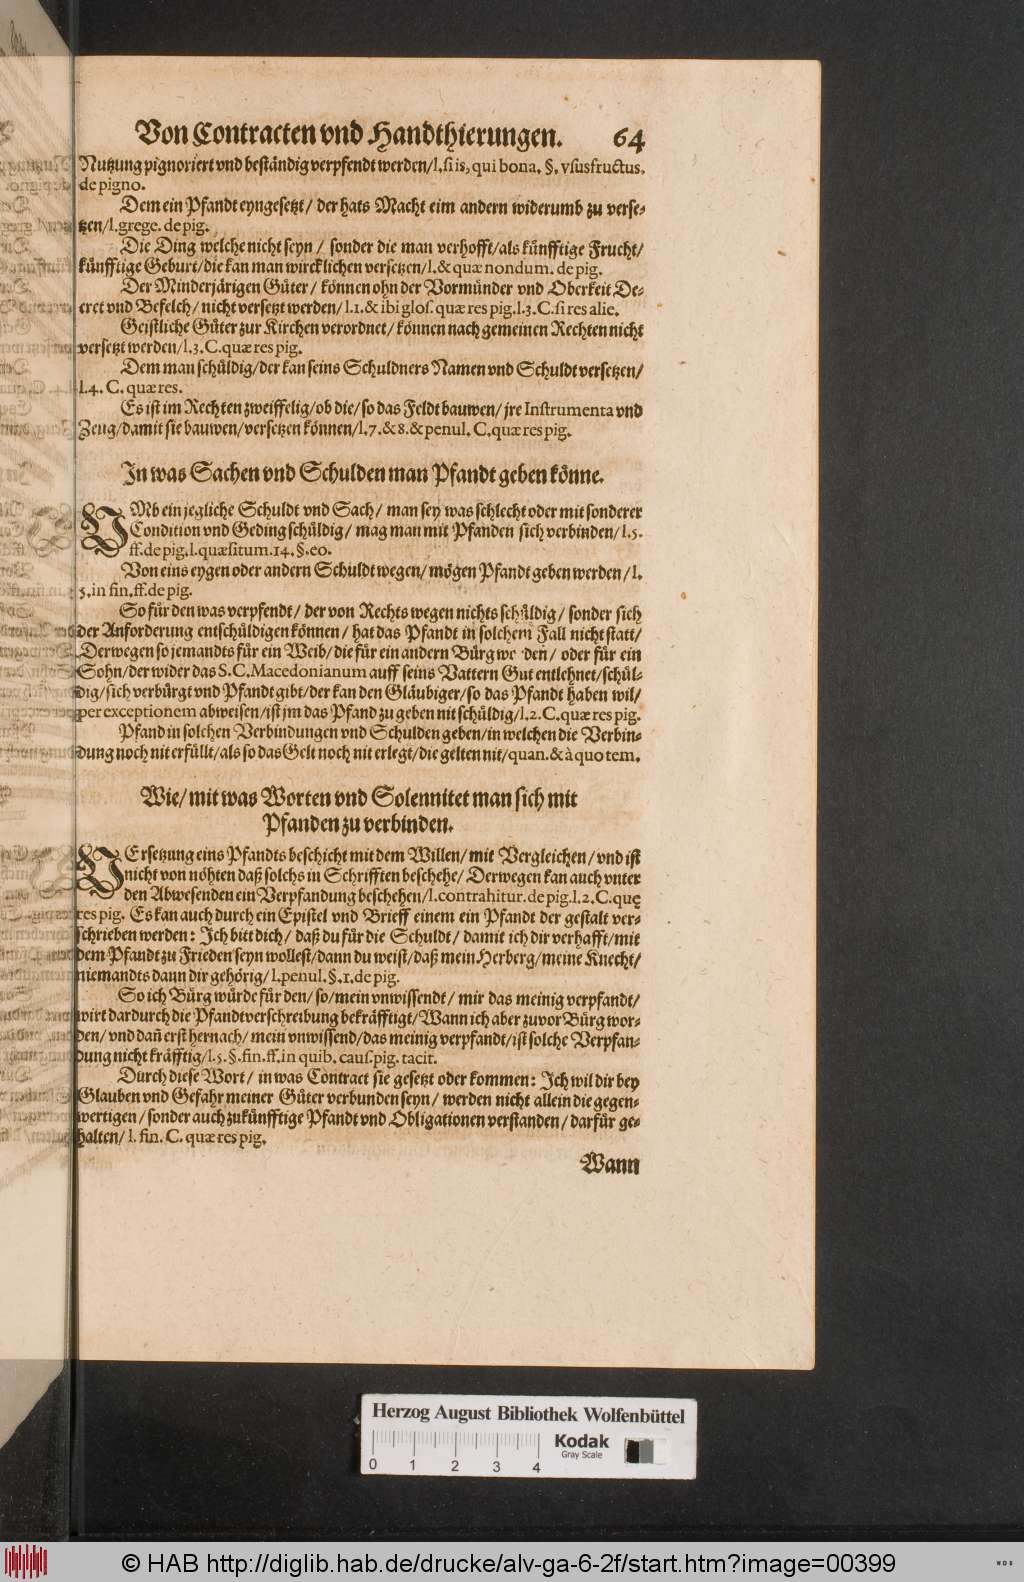 Von Contracten vnd Handthierungen. 64
Nutzung pignoriert vnd beständig verpfendt werden/l. si is, qui bona. §. vsusfructus.
de pigno.
Dem ein Pfandt eyngesetzt/ der hats Macht eim andern widerumb zu verse-
tzen/l. grege. de pig.
Die Ding welche nicht seyn/ sonder die man verhofft/als künfftige Frucht/
künfftige Geburt/die kan man wircklichen versetzen/l. & quæ nondum. de pig.
Der Minderjärigen Güter/ können ohn der Vormünder vnd Oberkeit De-
cret vnd Befelch/ nicht versetzt werden/ l.1. & ibi glos. quæ res pig. l.3. C. si res alie.
Geistliche Güter zur Kirchen verordnet/ können nach gemeinen Rechten nicht
versetzt werden/l.3. C. quæ res pig.
Dem man schüldig/der kan seins Schuldners Namen vnd Schuldt versetzen/
l.4. C. quæ res.
Es ist im Rechten zweiffelig/ob die/so das Feldt bauwen/ jre Instrumenta vnd
Zeug/damit sie bauwen/versetzen können/l.7. & 8. & penul. C. quæ res pig.
In was Sachen vnd Schulden man Pfandt geben könne.
VMb ein jegliche Schuldt vnd Sach/ man sey was schlecht oder mit sonderer
Condition vnd Geding schüldig/ mag man mit Pfanden sich verbinden/ l.5.
ff. de pig. l. quæsitum. 14. §. eo.
Von eins eygen oder andern Schuldt wegen/ mögen Pfandt geben werden/ l.
5. in fin. ff. de pig.
So für den was verpfendt/ der von Rechts wegen nichts schüldig/ sonder sich
der Anforderung entschüldigen können/ hat das Pfandt in solchem Fall nicht statt/
Derwegen so jemandts für ein Weib/die für ein andern Bürg worden/ oder für ein
Sohn/der wider das S. C. Macedonianum auff seins Vattern Gut entlehnet/schül-
dig/sich verbürgt vnd Pfandt gibt/der kan den Gläubiger/so das Pfandt haben wil/
per exceptionem abweisen/ist jm das Pfand zu geben nit schüldig/l.2. C. quæ res pig.
Pfand in solchen Verbindungen vnd Schulden geben/in welchen die Verbin-
dung noch nit erfüllt/als so das Gelt noch nit erlegt/die gelten nit/quan. & à quo tem.
Wie/ mit was Worten vnd Solennitet man sich mit
Pfanden zu verbinden.
VErsetzung eins Pfandts beschicht mit dem Willen/ mit Vergleichen/ vnd ist
nicht von nöhten daß solchs in Schrifften beschehe/ Derwegen kan auch vnter
den Abwesenden ein Verpfandung beschehen/l. contrahitur. de pig. l.2. C. quę
res pig. Es kan auch durch ein Epistel vnd Brieff einem ein Pfandt der gestalt ver-
schrieben werden: Ich bitt dich/ daß du für die Schuldt/ damit ich dir verhafft/mit
dem Pfandt zu Frieden seyn wollest/dann du weist/daß mein Herberg/meine Knecht/
niemandts dann dir gehörig/ l. penul. §.1. de pig.
So ich Bürg würde für den/ so/mein vnwissendt/ mir das meinig verpfandt/
wirt dardurch die Pfandtverschreibung bekräfftigt/Wann ich aber zuvor Bürg wor-
den/ vnd dañ erst hernach/ mein vnwissend/das meinig verpfandt/ist solche Verpfan-
dung nicht kräfftig/l.5. §. fin. ff. in quib. caus. pig. tacit.
Durch diese Wort/ in was Contract sie gesetzt oder kommen: Ich wil dir bey
Glauben vnd Gefahr meiner Güter verbunden seyn/ werden nicht allein die gegen-
wertigen/ sonder auch zukünfftige Pfandt vnd Obligationen verstanden/ darfür ge-
halten/ l. fin. C. quæ res pig.
Wann
Herzog August Bibliothek Wolfenbüttel
Kodak
Gray Scale
0 1 2 3 4
© HAB http://diglib.hab.de/drucke/alv-ga-6-2f/start.htm?image=00399
WDB